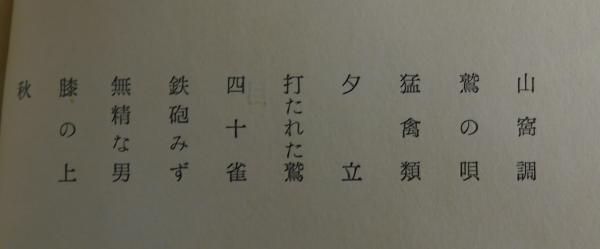 山窩調
鷲の唄
猛禽類
夕立
打たれた鷲
四十雀
鉄砲みず
無精な男
膝の上
秋